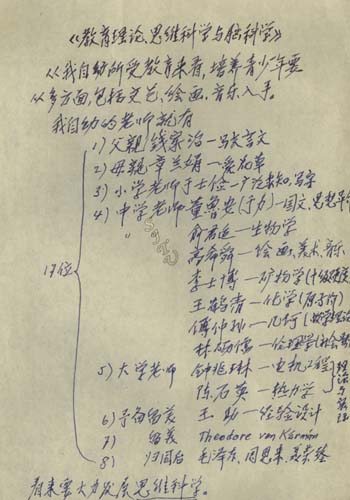 《教育理论、思维科学与脑科学》
从我自幼所受教育来看,培养青少年要
从多方面,包括文艺、绘画、音乐入手。
我自幼的老师就有
1) 父親 钱家治—写大言文
2) 母親 章兰娟—爱花草
3) 小学老师 于士俭—广泛求知,写字
4) 中学老师 董鲁安(于力)—国文,思想
俞君适—生物学
高希舜—绘画、美术、音乐
李士博—矿物学(十级硬度
王鹤清—化学(原子价)
17位
傅仲孙—几何(
林砺儒—伦理学(社会
5) 大学老师 钟兆琳—电机工程
陈石英—热力学
理论与实际
6) 予备留美 王助—经验设计
7) 留美 Theodore von Kármán
8) 归国后 毛泽东、周恩来、聂荣臻
看来要大力发展思维科学。